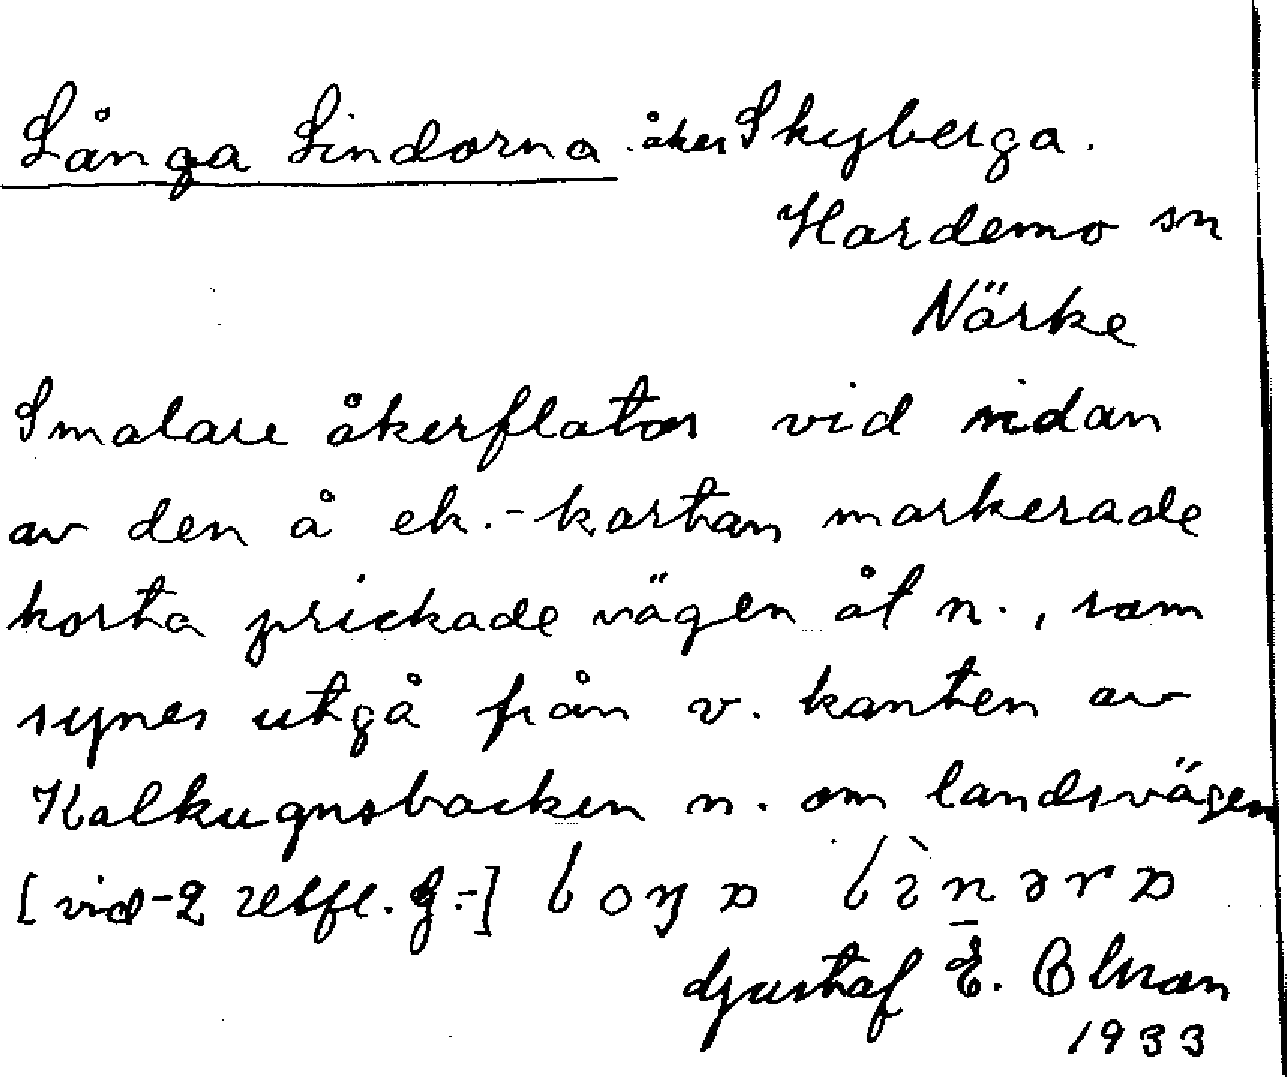 Långa Lindorna åker Skyberga.
Hardemo sn
Närke
Smalare åkerflator vid sidan
av den å ek.-kartan markerade
korta prickade vägen åt n., som
synes utgå från v. kanten av
Kalkugnsbacken n. om landsvägen
[vid-2
Gustaf E. Olsson
1933